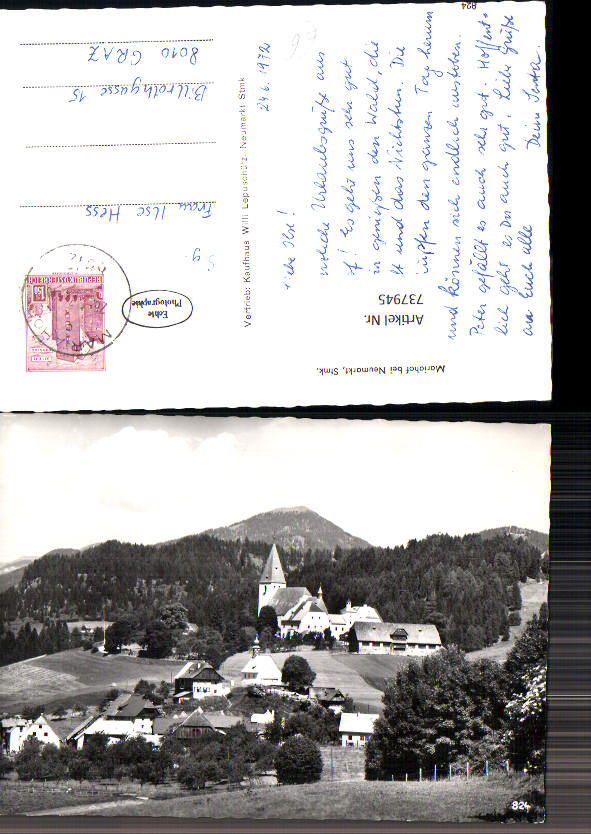 824
24.6.1972
Liebe Ilse!
Urlaubsgrüße aus
! Es geht uns sehr gut
genießen den Wald, die
und das Nichtstun. Die
den ganzen Tag herum
und können sich endlich austoben.
Peter gefällt es auch sehr gut. Hoffent-
lich geht es Dir auch gut. Liebe Grüße
an Euch alle
Deine
Artikel Nr.
737945
Mariahof bei Neumarkt, Stmk.
Vertrieb: Kaufhaus Willi Lepuschütz, Neumarkt Stmk
Echte
Photographie
REPUBLIK ÖSTERREICH
Frau Ilse Hess
Billrothgasse 15
8010 GRAZ
824